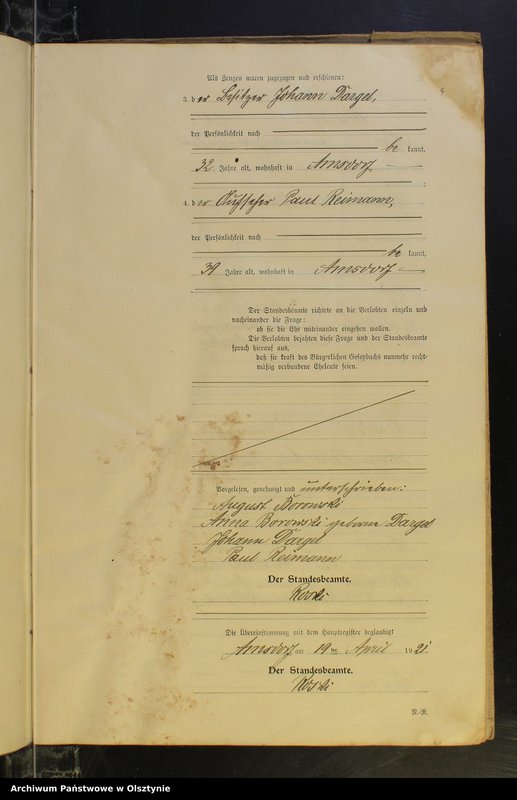 Als Zeugen waren zugezogen und erschienen:
3. der Besitzer Johann Dargel,
der Persönlichkeit nach
be kannt,
32 Jahre alt, wohnhaft in Amsdorf
;
4. der Aufseher Paul Reimann,
der Persönlichkeit nach
be kannt,
39 Jahre alt, wohnhaft in Amsdorf
.
Der Standesbeamte richtete an die Verlobten einzeln und
nacheinander die Frage:
ob sie die Ehe miteinander eingehen wollen.
Die Verlobten bejahten diese Frage und der Standesbeamte
sprach hierauf aus,
daß sie kraft des Bürgerlichen Gesetzbuchs nunmehr recht-
mäßig verbundene Eheleute seien.
Vorgelesen, genehmigt und unterschrieben:
August Borowski
Anna Borowski geborne Dargel
Johann Dargel
Paul Reimann
Der Standesbeamte.
Koski
Die Übereinstimmung mit dem Hauptregister beglaubigt
Amsdorf am 19 ten April 1921.
Der Standesbeamte.
Koski
Archiwum Państwowe w Olsztynie